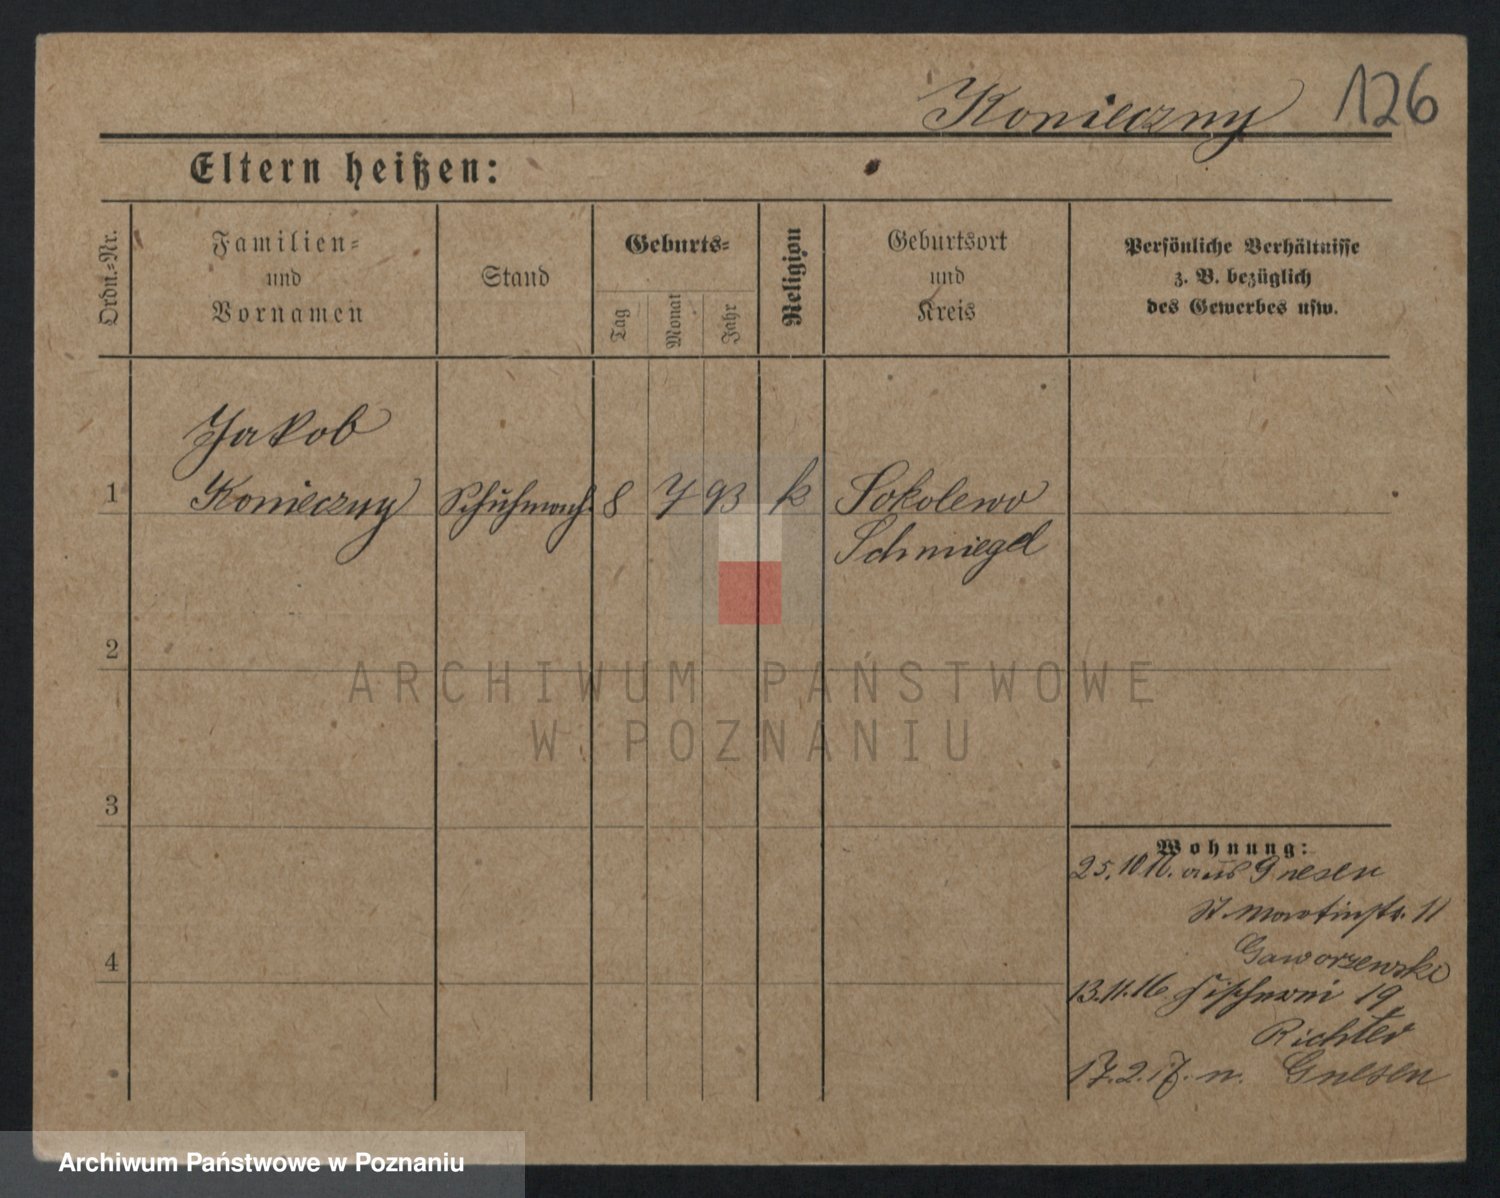 Konieczny 126
Eltern heißen:
Ordn.-Nr.
Familien-
und
Vornamen
Stand
Geburts-
Tag
Monat
Jahr
Religion
Geburtsort
und
Kreis
Persönliche Verhältnisse
z. B. bezüglich
des Gewerbes usw.
Jakob
1 Konieczny Schuhmach. 8 7 93 k Sokolewo
Schmiegel
2
ARCHIWUM PAŃSTWOWE
W POZNANIU
3
Wohnung:
25.10.16. aus Gnesen
St. Martinstr. 11
Gaworzewski
4
13.11.16 Fischerei 19
Richter
17.2.17. n. Gnesen
Archiwum Państwowe w Poznaniu